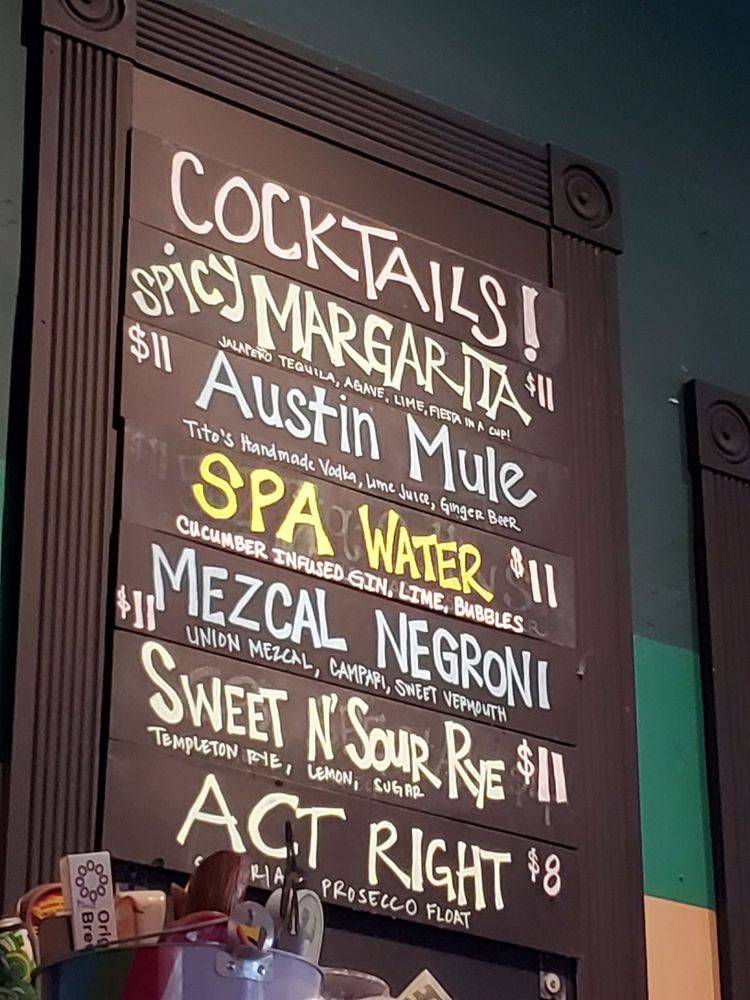 COCKTAILS!
SPICY MARGARITA $11
JALAPEÑO TEQUILA, AGAVE, LIME, FIESTA IN A CUP!
$11 Austin Mule
Tito's Handmade Vodka, Lime Juice, Ginger Beer
SPA WATER $11
CUCUMBER INFUSED GIN, LIME, BUBBLES
$11 MEZCAL NEGRONI
UNION MEZCAL, CAMPARI, SWEET VERMOUTH
SWEET N' SOUR RYE $11
TEMPLETON RYE, LEMON, SUGAR
ACT RIGHT $8
PROSECCO FLOAT